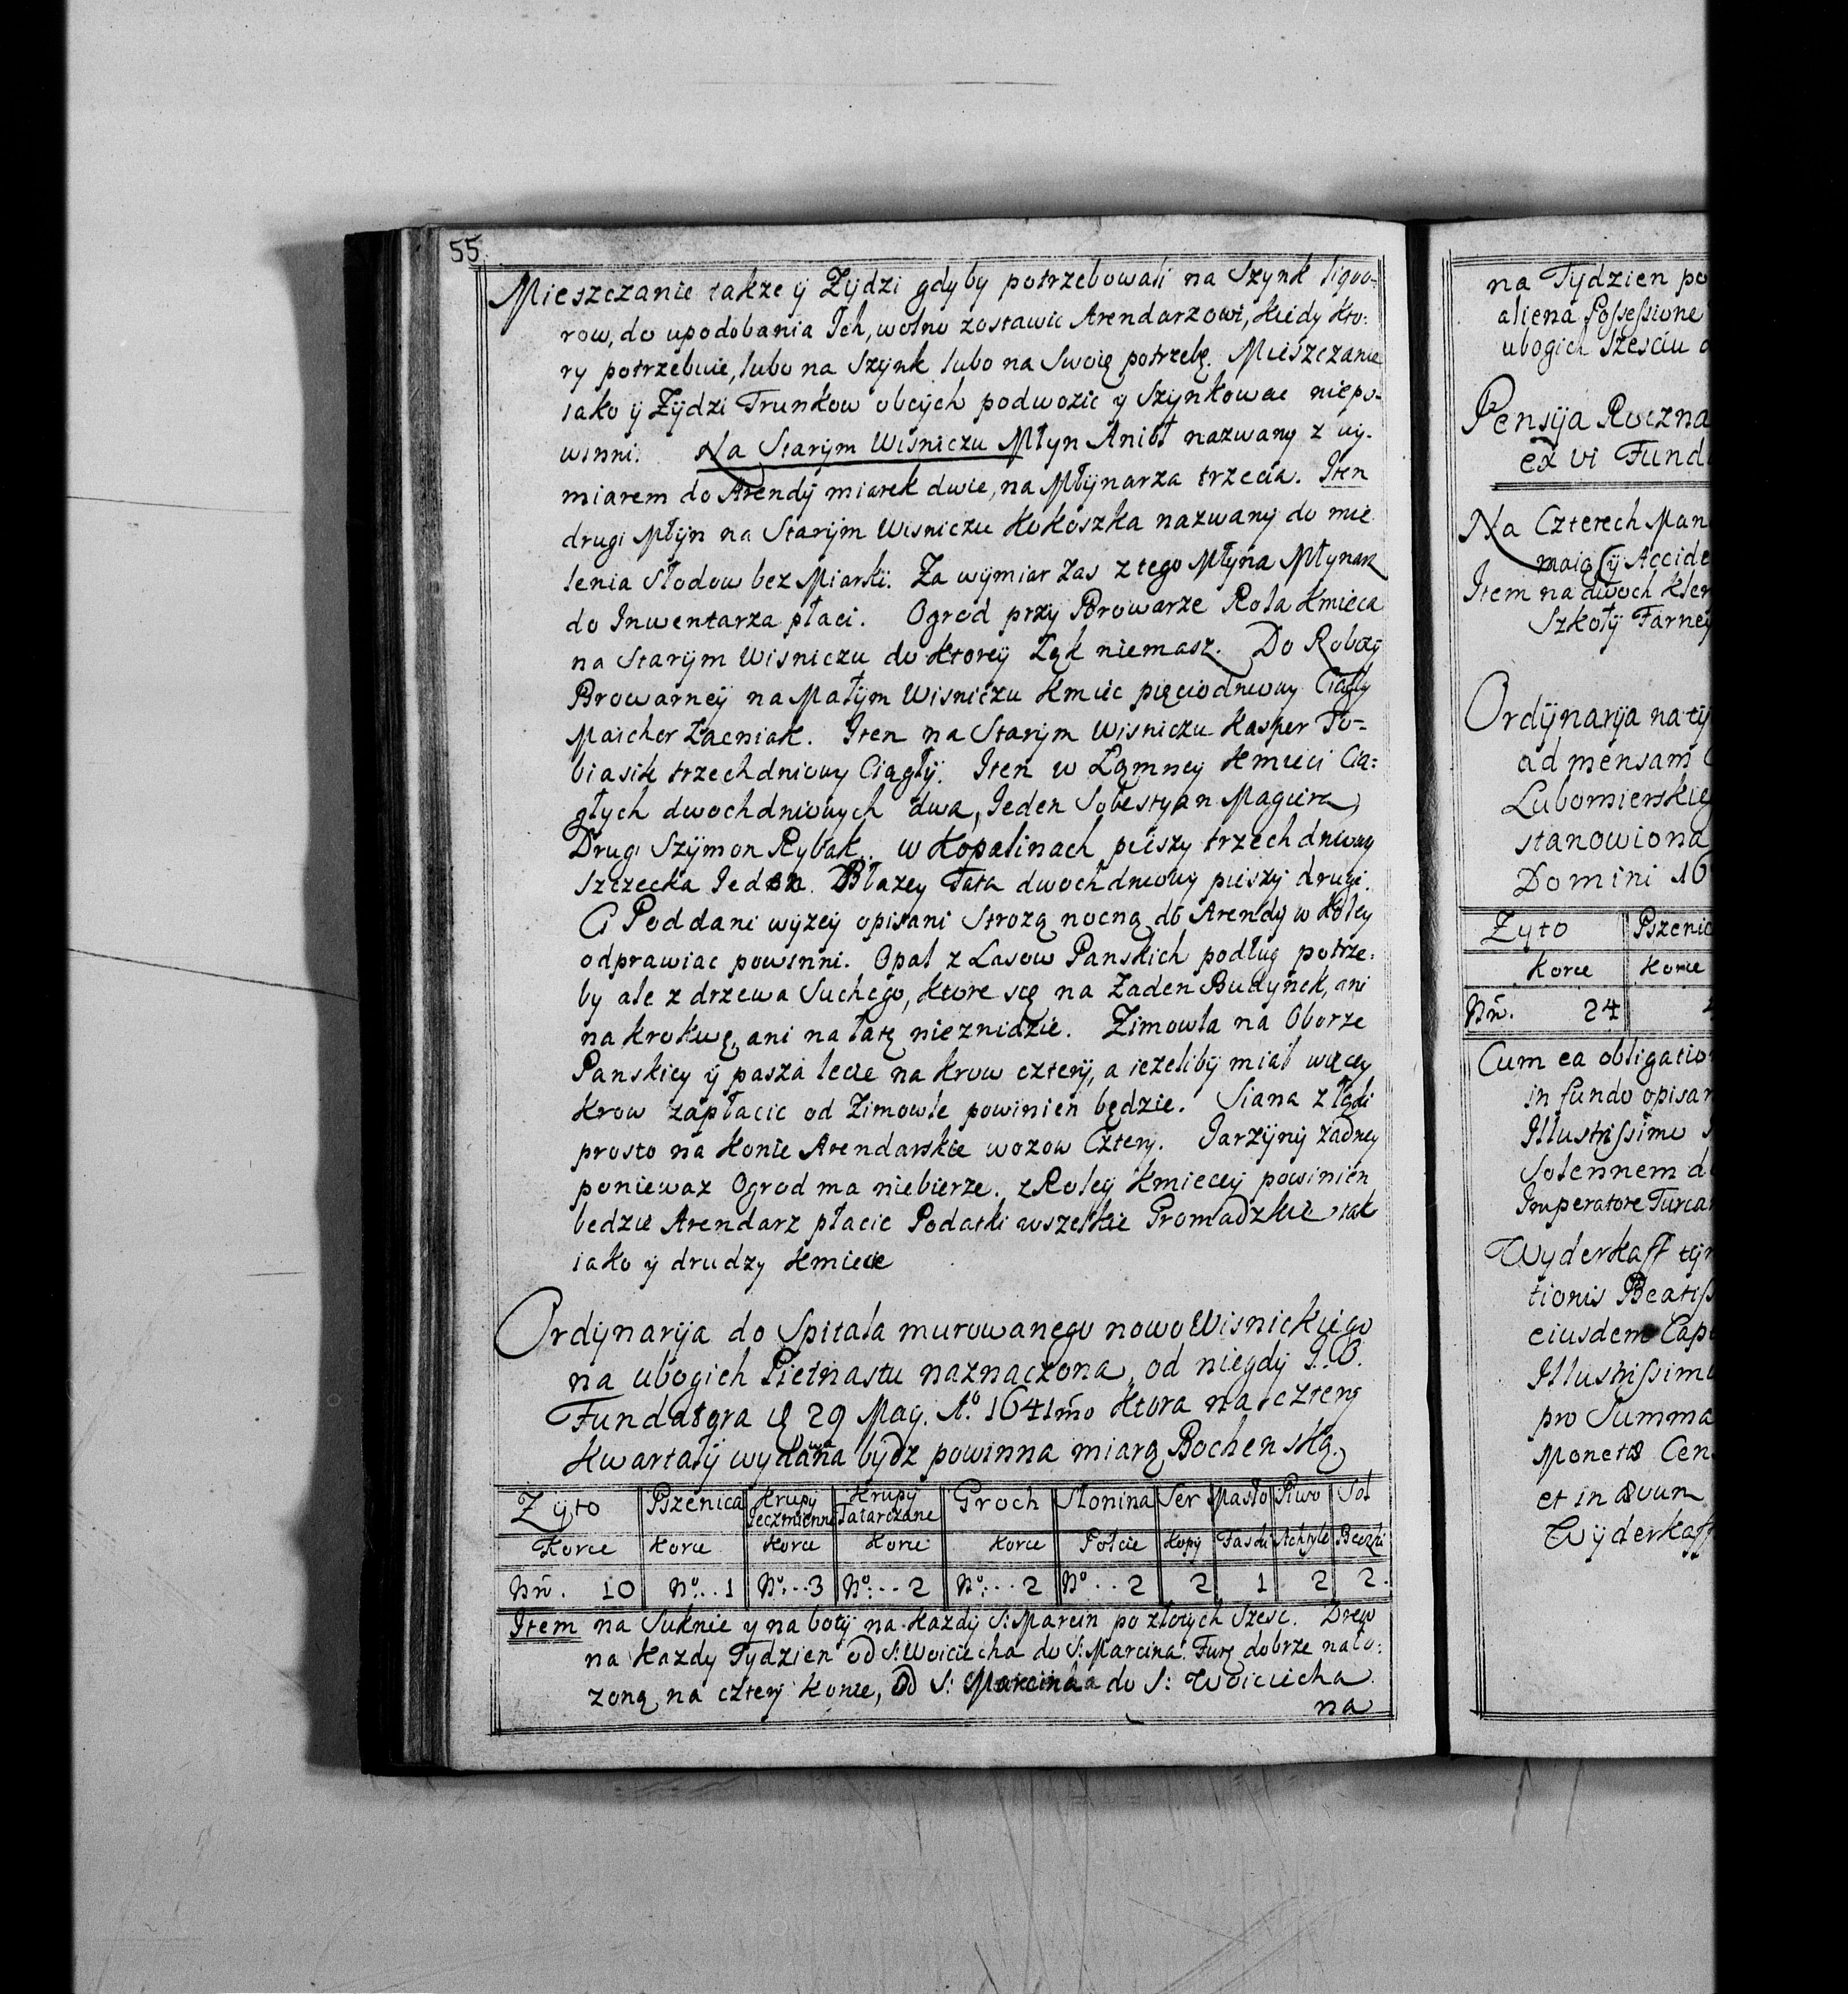 55
Mieszczanie takze ÿ Zÿdzi gdyby potrzebowali na Szynk liqwo=
row, do upodobania Ich, wolno zostawic Arendarzowi, kiedy kto:
ry potrzebuie, lubo na Szynk lubo na Swoię potrzebę. Mieszczanie
iako ÿ Zÿdzi Trunkow obcÿch podwozic y Szynkowac niepo=
winni. Na Starÿm Wisniczu Młyn Anioł nazwany z wy=
miarem do Arendÿ miarek dwie, na Młÿnarza trzecia. Iten
drugi Młÿn na Starÿm Wisniczu Kokoszka nazwanÿ do mie
lenia Słodow bez Miarki. Za wÿmiar zas z tego Młÿna Młynarz
do Inwentarza płaci. Ogrod przy Browarze Rola Kmieca
na Starÿm Wisniczu do Ktoreÿ Łąk niemasz. Do Robotÿ
Browarneÿ na Małÿm Wisniczu Kmiec pięciodniowy Ciągły
Maicher Zacniak. Iten na Starÿm Wisniczu Kasper To=
biasik trzechdniowy Ciągłÿ. Iten w Łąmney Kmieci Cią=
głych dwochdniowych dwa, Ieden Sobestyan Maguira,
Drugi Szÿmon Rybak. w Kopalinach pieszy trzechdniowy
Szczecka Ieden. Błazey Tata dwochdniowy pieszÿ drugi.
Ci Poddani wyzeÿ opisani Strozą nocną do Arendÿ w Koley
odprawiac powinni. Opał z Lasow Panskich podług potrze:
by ale z drzewa Suchego, ktore się na Zaden Budÿnek, ani
na krokwę, ani na łatę nieznidzie. Zimowla na Oborze
Panskiey ÿ pasza lecie na krow czterÿ, a iezelibÿ miał więcey
Krow zapłacic od Zimowle powinien będzie. Siana z łąki
prosto na Konie Arendarskie wozow Cztery. Iarzÿnÿ zadney
poniewaz Ogrod ma niebierze. z Roleÿ Kmieceÿ powinien
bedzie Arendarz płacic Podatki wszelkie Gromadzkie, tak
iako ÿ drudzy Kmiecie
Ordÿnarÿa do Spitala murowanego nowo Wisnickiego
na ubogich Pietnastu naznaczona, od niegdÿ I. O.
Fundatora 29 Maÿ. Aº 1641mo Ktora na cztery
Kwartałÿ wydawana bÿdz powinna miarą Bochenską.
Zÿto | Pszenica | Krupÿ Ieczmienne | Krupÿ Tatarczane | Groch | Słonina | Ser | Masło | Piwo | Sol
Korce | Korce | Korce | Korce | Korce | Połcie | Kopÿ | Faski | Achtyle | Beczki
Nrō. 10 | Nº... 1 | Nº... 3 | Nº... 2 | Nº... 2 | Nº.. 2 | 2 | 1 | 2 | 2.
Item na Suknie y na botÿ na Kazdÿ S: Marcin po złotych Szesc. Drew
na Kazdy Tÿdzien od S: Woiciecha do S: Marcina. Furę dobrze nało:
zoną na czterÿ Konie, Od S: Marcina do S: Woiciecha
na
na Tÿdzien po
aliena Possessione
ubogich Szesciu
Pensÿa Roczna
ex vi Fund
Na Czterech Man
maią ÿ Accide
Item na dwoch Kler
Szkołÿ Farneÿ
Ordÿnarÿa na tÿ
ad mensam
Lubomierskieg
stanowiona
Domini 16
Zyto | Pszenic
Korce | Korce
Nrō. 24
Cum ea obligatio
in fundo opisan
Illustrissimo
Solennem d
Imperatore Turcar
Wyderkaff tÿ
tionis Beatiss
eiusdem Cap
Illustrissimo
pro Summa
Monetæ Cen
et in ævum
Wÿderkaff